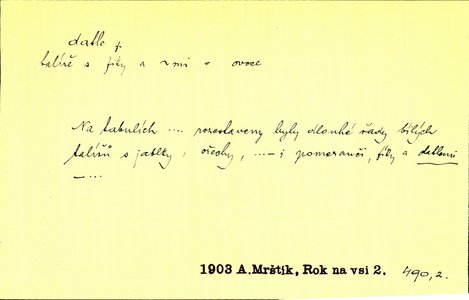 datle f.
talíře s fíky a nimi - ovoce
Na tabulích .... rozestaveny byly dlouhé řady bílých
talířů s jablky, ořechy, ...- i pomeranči, fíky a datlemi
- ...
1903 A.Mrštík, Rok na vsi 2. 490,2.